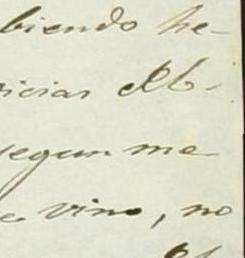 biendo he-
icias Ab-
segun me
vino, no